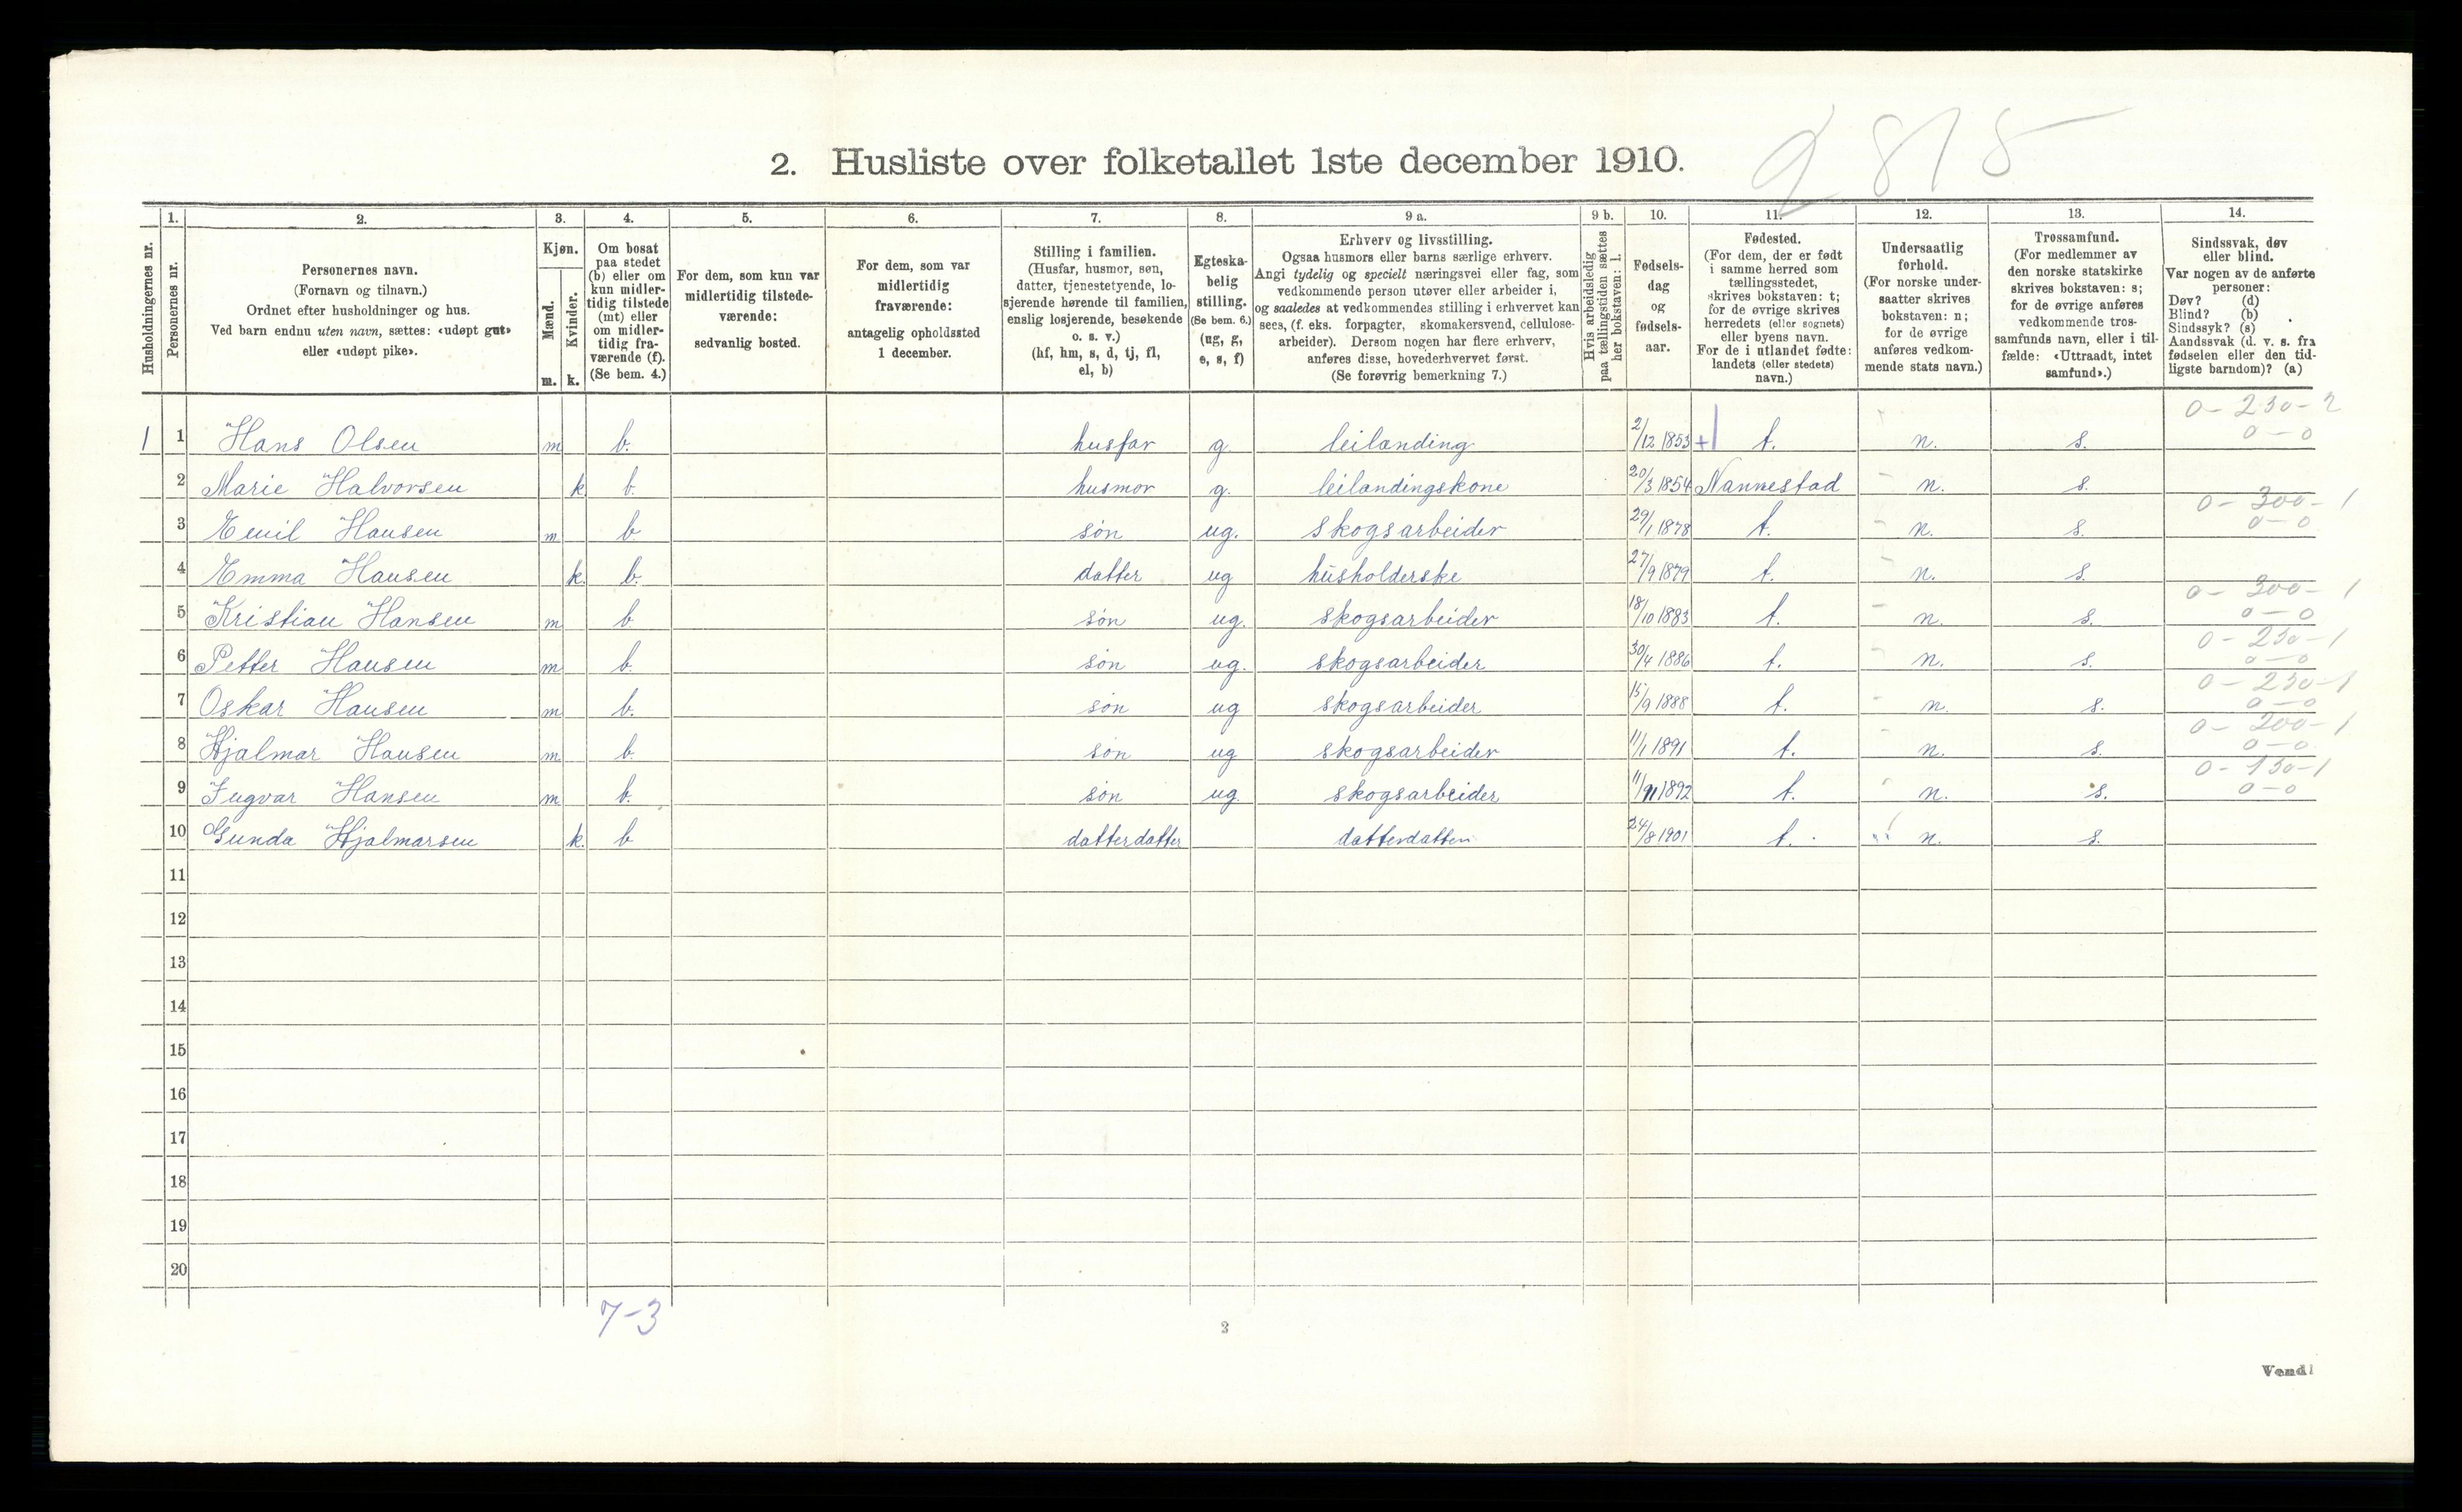 2815
2. Husliste over folketallet 1ste december 1910.
1. 2. 3. 4. 5. 6. 7. 8. 9 a. 9 b. 10. 11. 12. 13. 14.
Husholdningernes nr.
Personernes nr.
Personernes navn.
(Fornavn og tilnavn.)
Ordnet efter husholdninger og hus.
Ved barn endnu uten navn, sættes: «udøpt gut»
eller «udøpt pike».
Kjøn.
Mænd.
Kvinder.
m. k.
Om bosat
paa stedet
(b) eller om
kun midler-
tidig tilstede
(mt) eller
om midler-
tidig fra-
værende (f).
(Se bem. 4.)
For dem, som kun var
midlertidig tilstede-
værende:
sedvanlig bosted.
For dem, som var
midlertidig
fraværende:
antagelig opholdssted
1 december.
Stilling i familien.
(Husfar, husmor, søn,
datter, tjenestetyende, lo-
sjerende hørende til familien,
enslig losjerende, besøkende
o. s. v.)
(hf, hm, s, d, tj, fl,
el, b)
Egteska-
belig
stilling.
(Se bem. 6.)
(ug, g,
e, s, f)
Erhverv og livsstilling.
Ogsaa husmors eller barns særlige erhverv.
Angi tydelig og specielt næringsvei eller fag, som
vedkommende person utøver eller arbeider i,
og saaledes at vedkommendes stilling i erhvervet kan
sees, (f. eks. forpagter, skomakersvend, cellulose-
arbeider). Dersom nogen har flere erhverv,
anføres disse, hovederhvervet først.
(Se forøvrig bemerkning 7.)
Hvis arbeidsledig
paa tællingstiden sættes
her bokstaven: l.
Fødsels-
dag
og
fødsels-
aar.
Fødested.
(For dem, der er født
i samme herred som
tællingsstedet,
skrives bokstaven: t;
for de øvrige skrives
herredets (eller sognets)
eller byens navn.
For de i utlandet fødte:
landets (eller stedets)
navn.)
Undersaatlig
forhold.
(For norske under-
saatter skrives
bokstaven: n;
for de øvrige
anføres vedkom-
mende stats navn.)
Trossamfund.
(For medlemmer av
den norske statskirke
skrives bokstaven: s;
for de øvrige anføres
vedkommende tros-
samfunds navn, eller i til-
fælde: «Uttraadt, intet
samfund».)
Sindssvak, døv
eller blind.
Var nogen av de anførte
personer:
Døv? (d)
Blind? (b)
Sindssyk? (s)
Aandssvak (d. v. s. fra
fødselen eller den tid-
ligste barndom)? (a)
0 - 230 - 2
1 1 Hans Olsen m b. husfar g. leilending 2/12 1853 +1 t. n. s. 0-0
2 Marie Halvorsen k b. husmor g. leilendingskone 20/3 1854 Nannestad n. s.
0 - 300 - 1
3 Emil Hansen m b søn ug. skogsarbeider 29/1 1878 t. n. s. 0-0
4 Emma Hansen k. b. datter ug husholderske 27/9 1879 t. n. s.
0 - 300 - 1
5 Kristian Hansen m b søn ug. skogsarbeider 18/10 1883 t. n. s. 0-0
0 - 250 - 1
6 Petter Hansen m b. søn ug. skogsarbeider 30/4 1886 t. n. s. 0-0
0 - 250 - 1
7 Oskar Hansen m b. søn ug skogsarbeider 15/9 1888 t. n. s. 0-0
0 - 200 - 1
8 Hjalmar Hansen m b. søn ug skogsarbeider 11/1 1891 t. n. s. 0-0
0 - 150 - 1
9 Ingvar Hansen m b. søn ug. skogsarbeider 11/11 1892 t. n. s. 0-0
10 Gunda Hjalmarsen k. b datterdatter datterdatter 24/8 1901 t. n. s.
11
12
13
14
15
16
17
18
19
20
7-3
3
Vend!